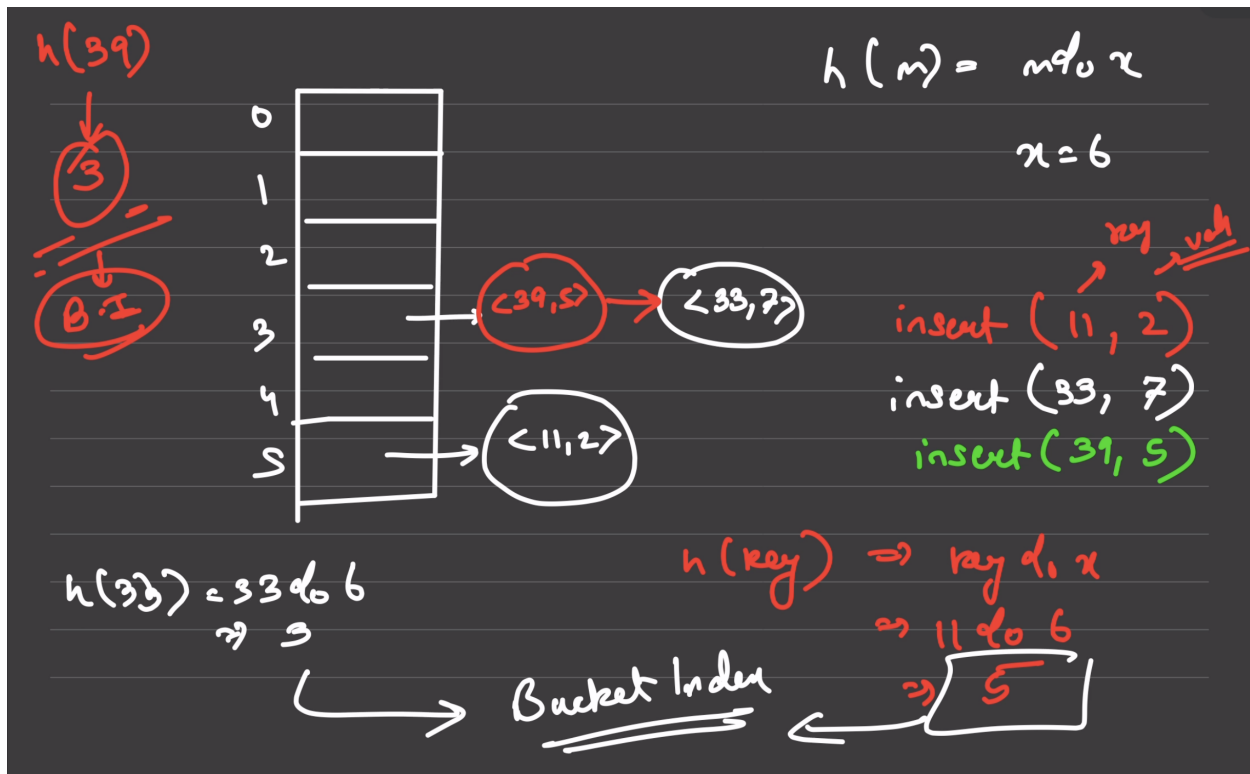 h(39)
3
B.I
h(n) = n % x
x = 6
0
1
2
3
4
5
<39,5>
<33,7>
<11,2>
key
insert (11, 2)
insert (33, 7)
insert (39, 5)
h(33) = 33 % 6
⇒ 3
h(key) ⇒ key % x
⇒ 11 % 6
⇒ 5
Bucket Index